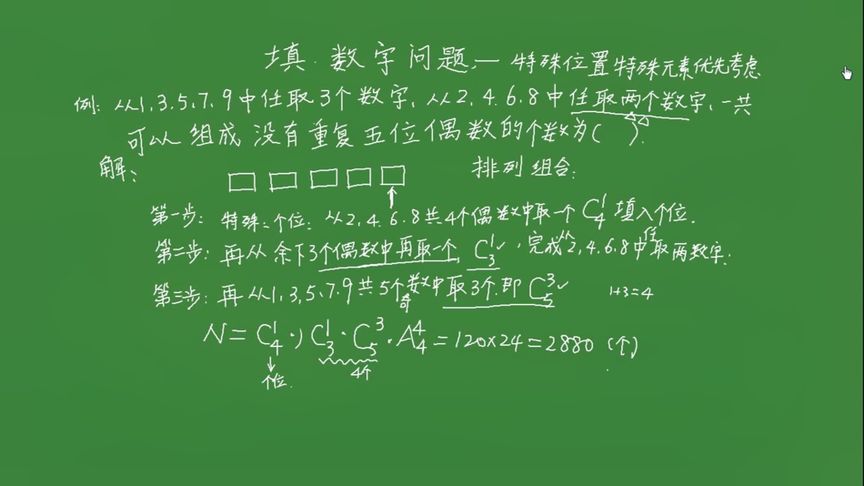 填数字问题——特殊位置特殊元素优先考虑
例:从1、3、5、7、9中任取3个数字,从2、4、6、8中任取两个数字、一共
可以组成没有重复五位偶数的个数为( ).
解: 排列组合:
第一步:特殊:个位:从2、4、6、8共4个偶数中取一个 C₄¹ 填入个位.
第二步:再从余下3个偶数中再取一个, C₃¹✓,完成从2、4、6、8中任取两数字.
第三步:再从1,3,5、7.9共5个奇数中取3个.即 C₅³✓ 1+3=4
N=C₄¹·C₃¹·C₅³·A₄⁴=120×24=2880 (个)
个位. 4个